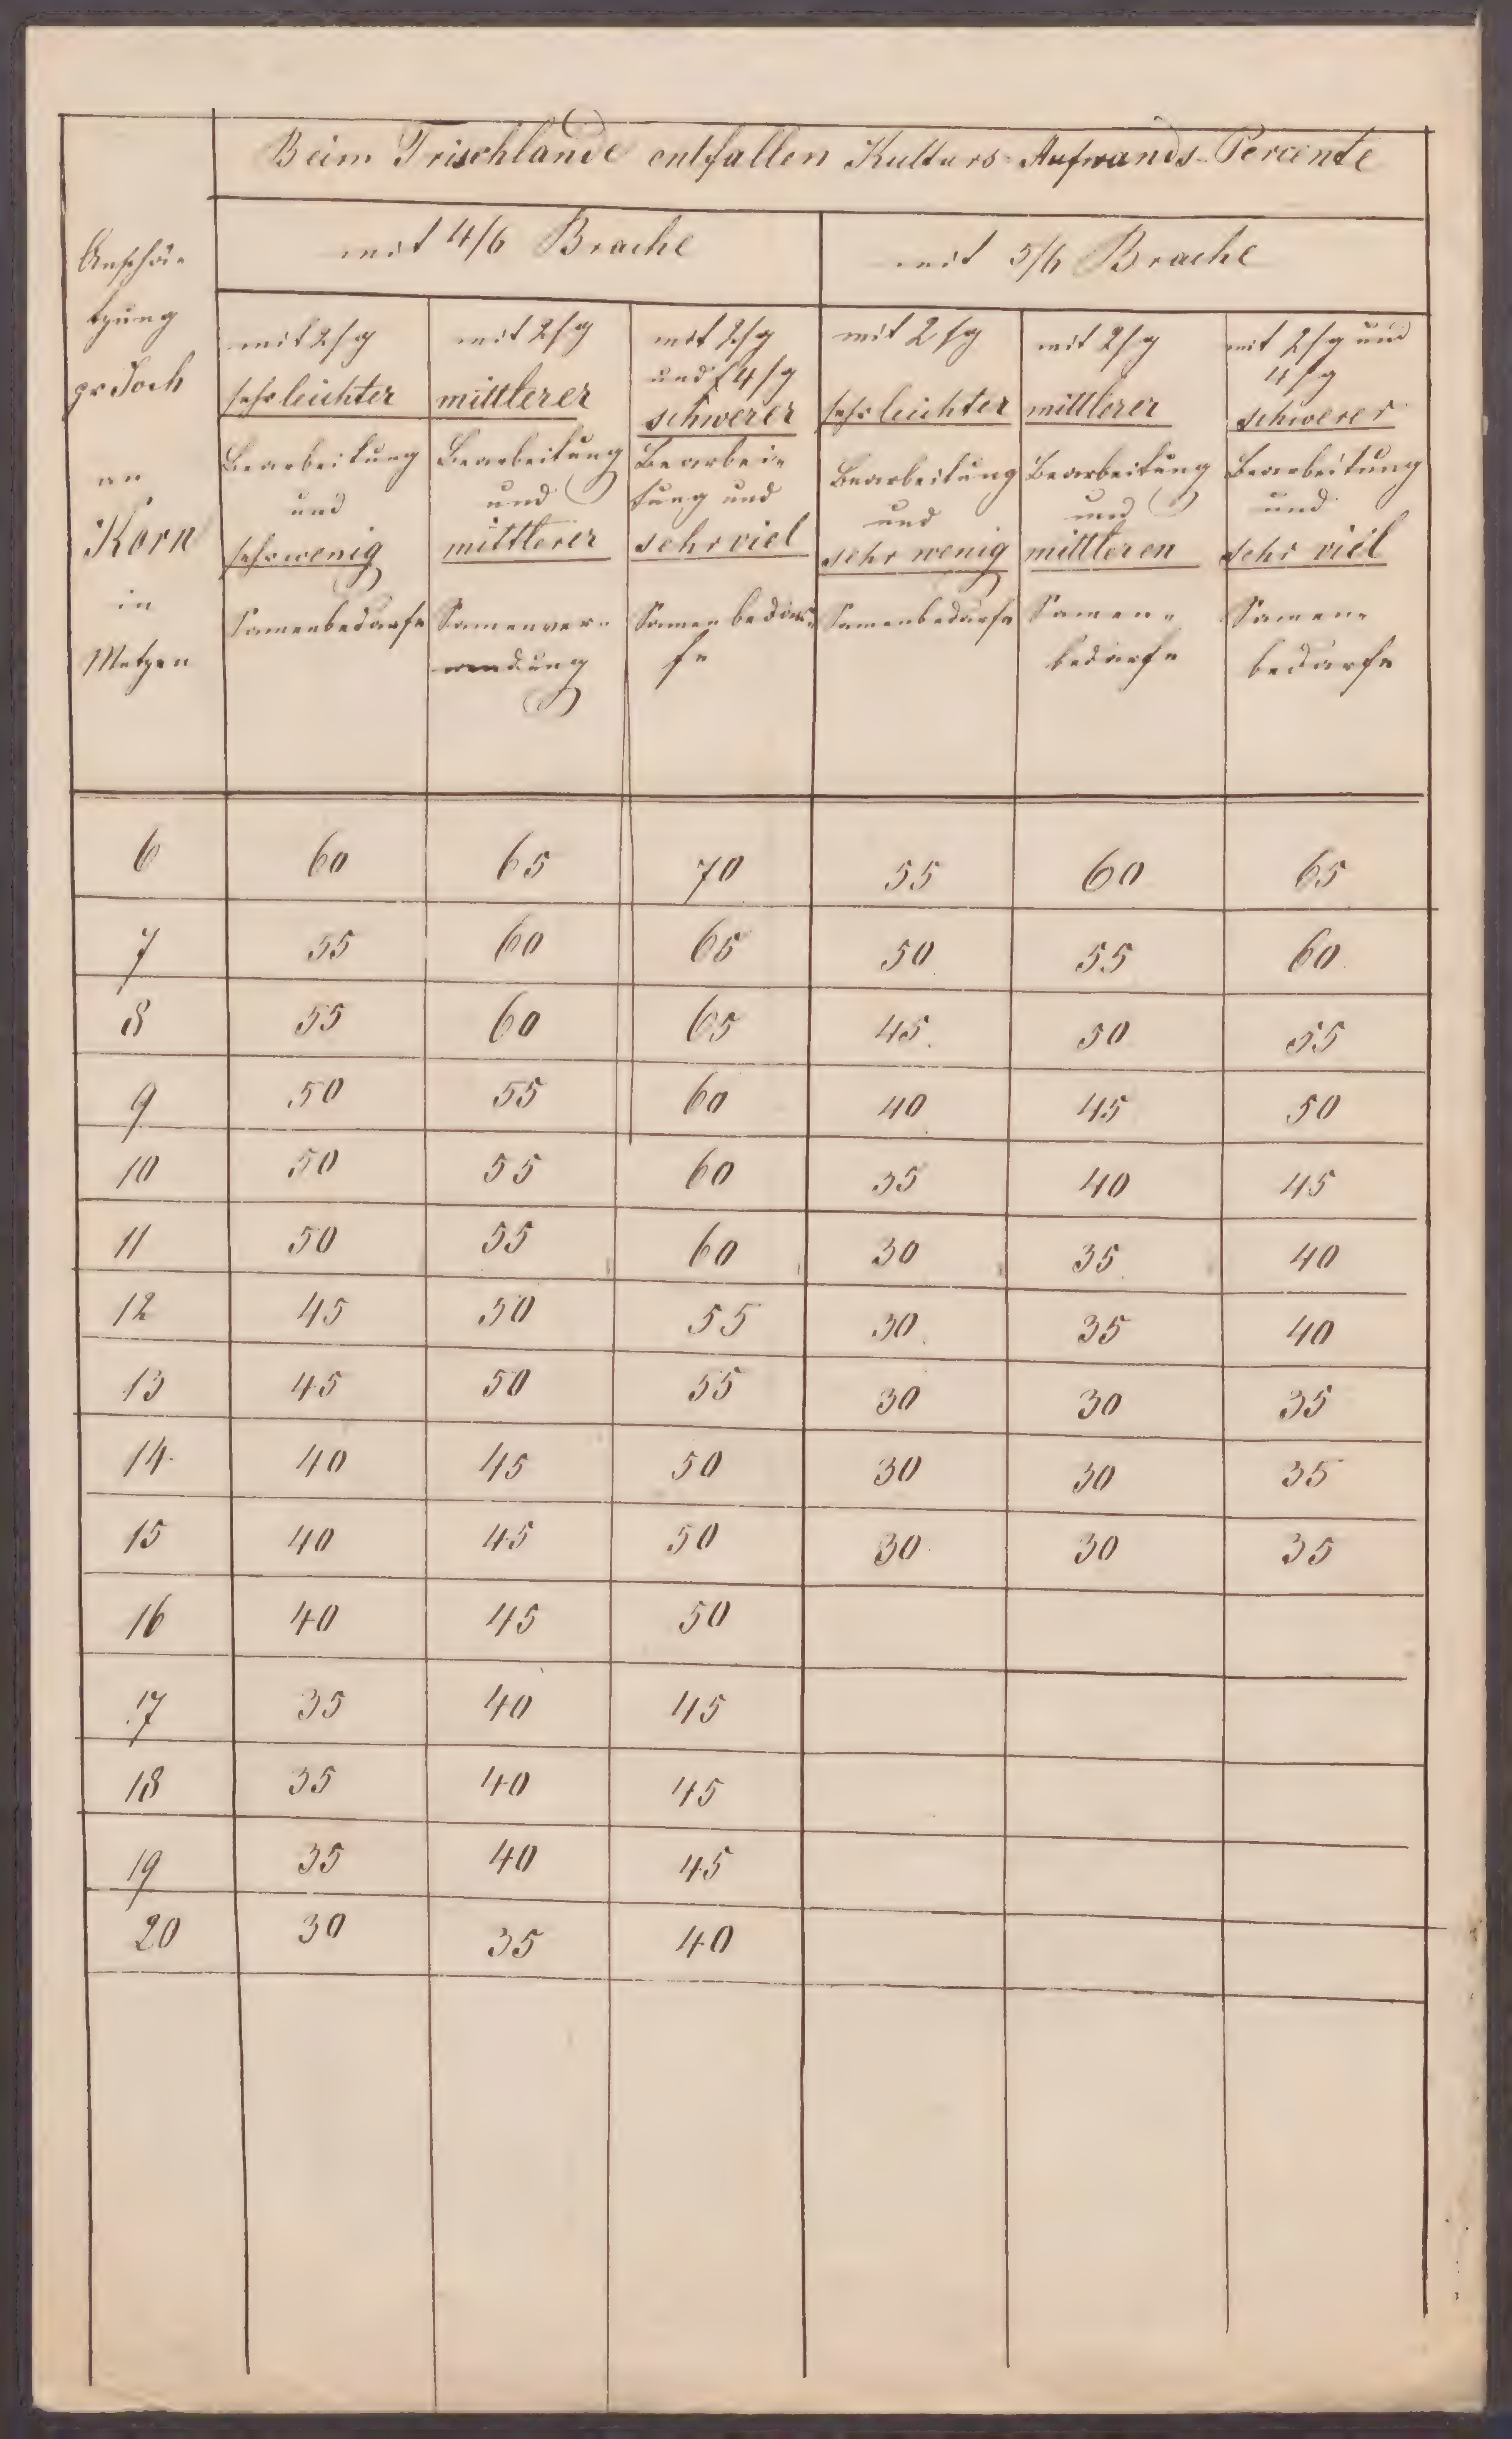 Beim Trischlande entfallen Kulturs-Aufwands-Percente
mit 4/6 Brache
mit 5/6 Brache
Anschä-
tzung
pr Joch
an
Korn
in
Metzen
mit 2/g
sehr leichter
Bearbeitung
und
sehr wenig
Samenbedarfe
mit 2/g
mittlerer
Bearbeitung
und
mittlerer
Samenver-
wendung
mit 2/g
und 4/g
schwerer
Bearbei-
tung und
sehr viel
Samenbedar-
fe
mit 2/g
sehr leichter
Bearbeitung
und
sehr wenig
Samenbedarfe
mit 2/g
mittlerer
Bearbeitung
und
mittleren
Samen-
bedarfe
mit 2/g und
4/g
schwerer
Bearbeitung
und
sehr viel
Samen-
bedarfe
6 60 65 70 55 60 65
7 55 60 65 50 55 60
8 55 60 65 45 50 55
9 50 55 60 40 45 50
10 50 55 60 35 40 45
11 50 55 60 30 35 40
12 45 50 55 30 35 40
13 45 50 55 30 30 35
14 40 45 50 30 30 35
15 40 45 50 30 30 35
16 40 45 50
17 35 40 45
18 35 40 45
19 35 40 45
20 30 35 40